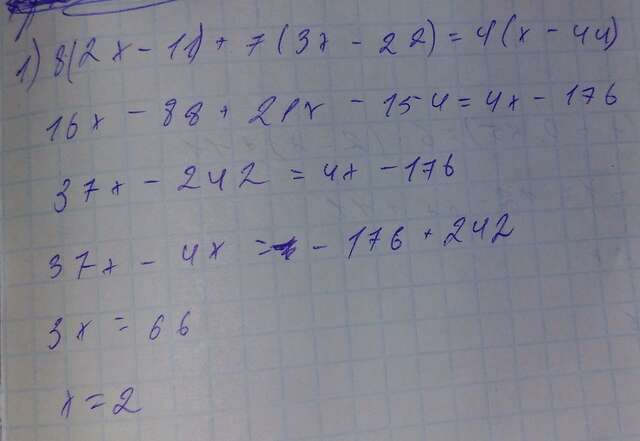 1) 8(2x - 11) + 7(3x - 22) = 4(x - 44)
16x - 88 + 21x - 154 = 4x - 176
37x - 242 = 4x - 176
37x - 4x = - 176 + 242
3x = 66
x = 2